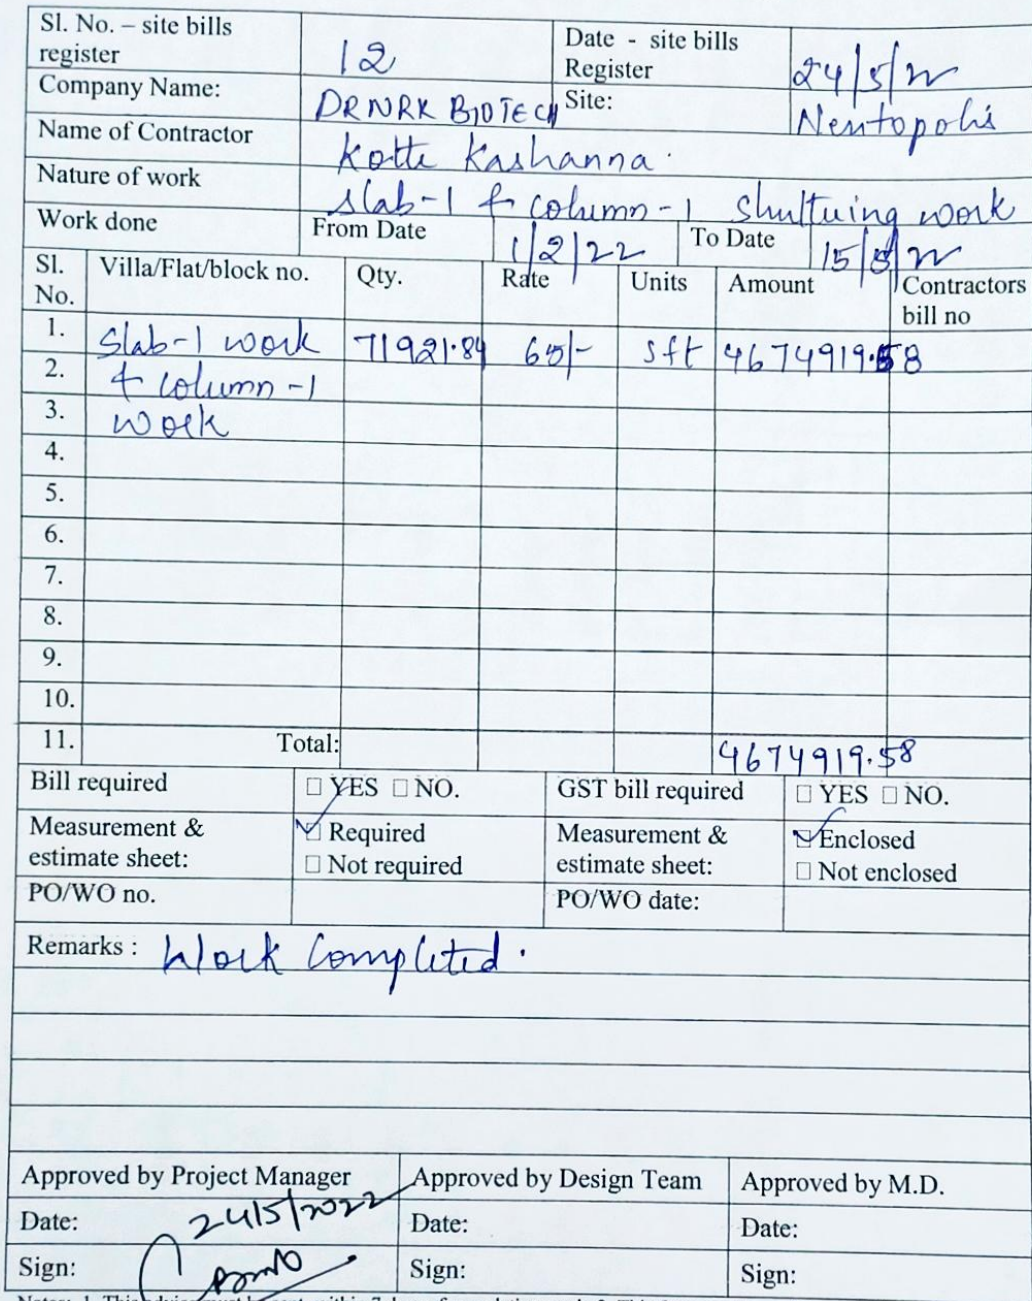 Sl. No. – site bills register 12 Date - site bills Register 24/5/22
Company Name: DRNRK BIOTECH Site: Neutopolis
Name of Contractor Kotte Kashanna.
Nature of work Slab-1 & column-1 Shuttuing work
Work done From Date 1/2/22 To Date 15/5/22
Sl. No. Villa/Flat/block no. Qty. Rate Units Amount Contractors bill no
1. Slab-1 work 71921.84 65/- sft 4674919.58
2. & column-1
3. work
4.
5.
6.
7.
8.
9.
10.
11. Total: 4674919.58
Bill required □ YES □ NO. GST bill required □ YES □ NO.
Measurement & estimate sheet: ☑ Required □ Not required Measurement & estimate sheet: ☑ Enclosed □ Not enclosed
PO/WO no. PO/WO date:
Remarks : Work Completed.
Approved by Project Manager Approved by Design Team Approved by M.D.
Date: 24/5/2022 Date: Date:
Sign: Sign: Sign: